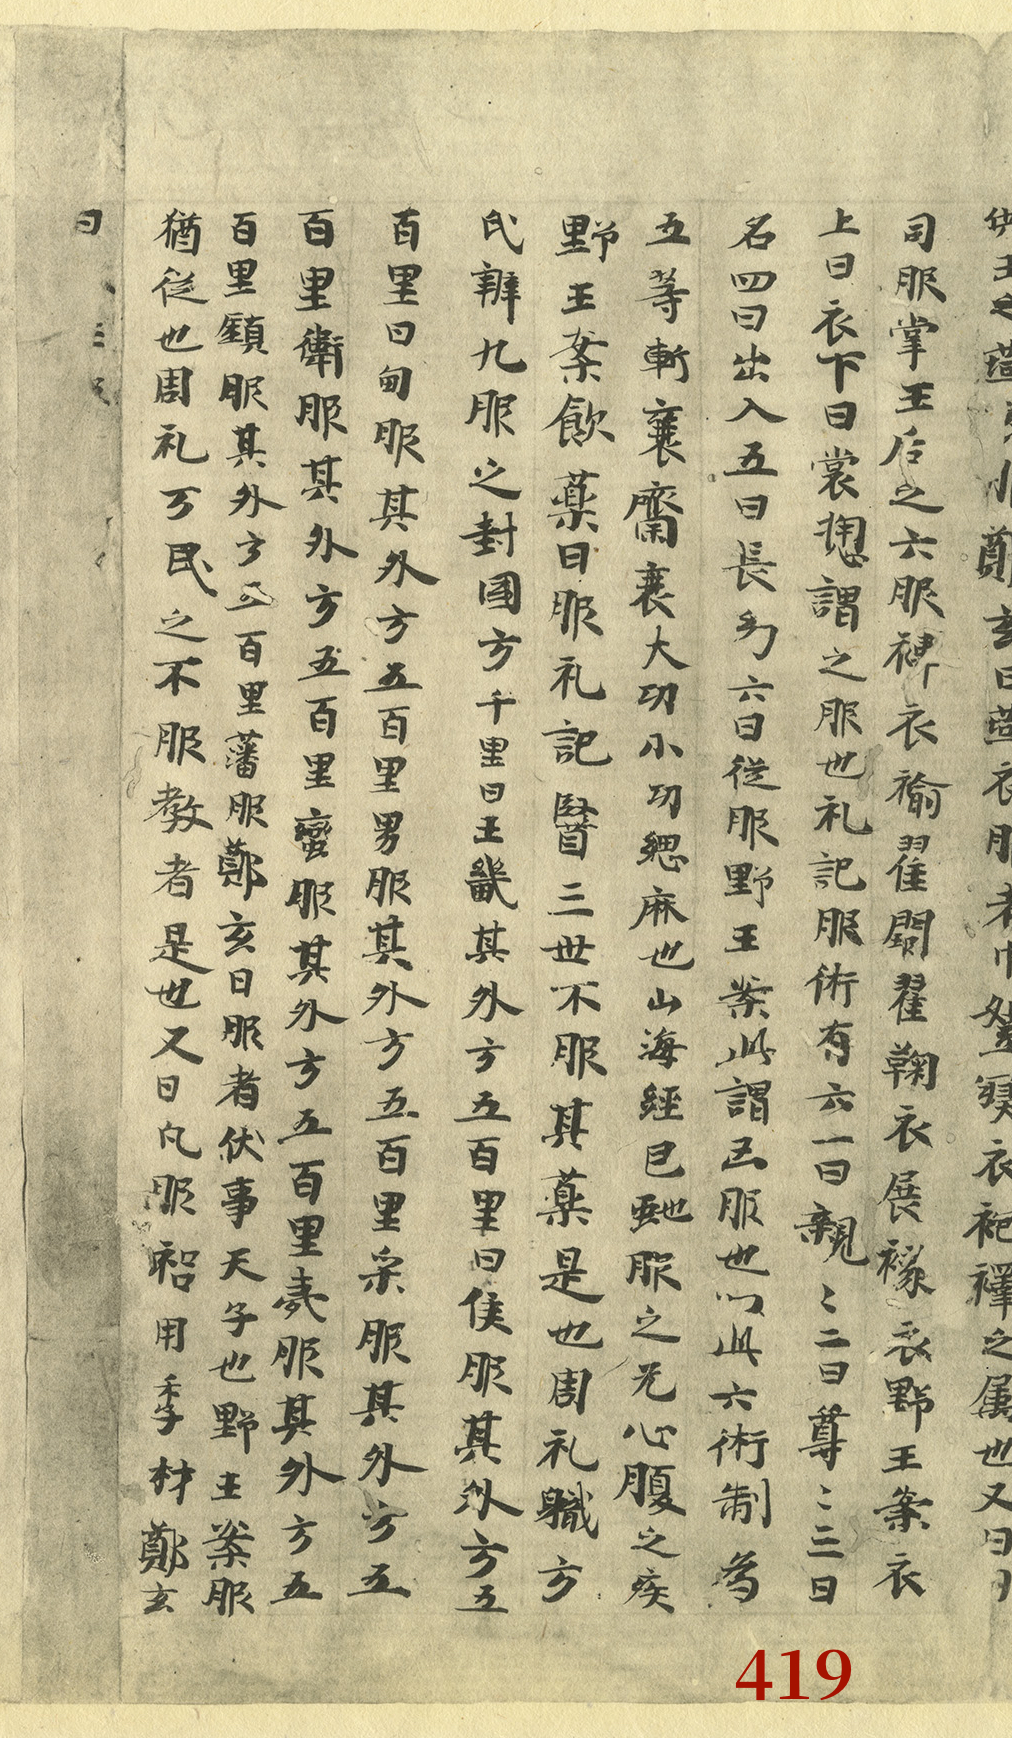 供王之燕〻鄭玄曰燕衣服者巾絮寢衣袍襗之属也又曰
司服掌王后之六服褘衣褕翟闕翟鞠衣展衣褖衣野王案衣
上曰衣下曰裳揔謂之服也礼記服術有六一曰親〻二曰尊〻三曰
名四曰出入五曰長㓜六曰従服野王案此謂凶服也以此六術制爲
五等斬衰齊衰大功小功緦麻也山海經巴虵服之无心腹之疾
野王案飲藥曰服礼記醫三世不服其藥是也周礼職方
氏辨九服之封國方千里曰王畿其外方五百里曰侯服其外方五
百里曰甸服其外方五百里男服其外方五百里采服其外方五
百里衛服其外方五百里蠻服其外方五百里夷服其外方五
百里鎮服其外方五百里藩服鄭玄曰服者伏事天子也野王案服
猶従也周礼万民之不服教者是也又曰凡服耜用季材鄭玄
曰
419